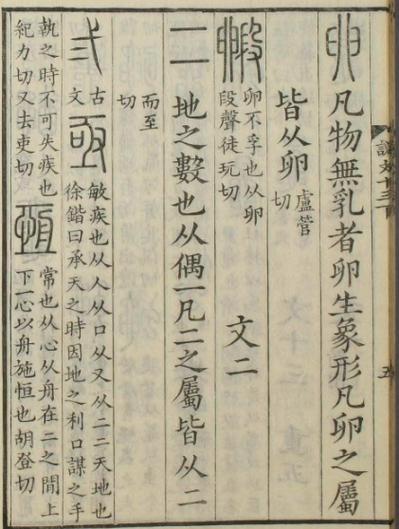 卵凡物無乳者卵生象形凡卵之屬
皆从卵盧管
切
文二
毈卵不孚也从卵
段聲徒玩
切
二地之數也从偶一凡二之屬皆从二
而至
切
弍古
文
亟敏疾也从人从口从又从二二天地也
徐鍇曰承天之時因地之利口謀之手
執之時不可失疾也
紀力切又去吏切
恆常也从心从舟在二之閒上
下心以舟施恒也胡登切
五